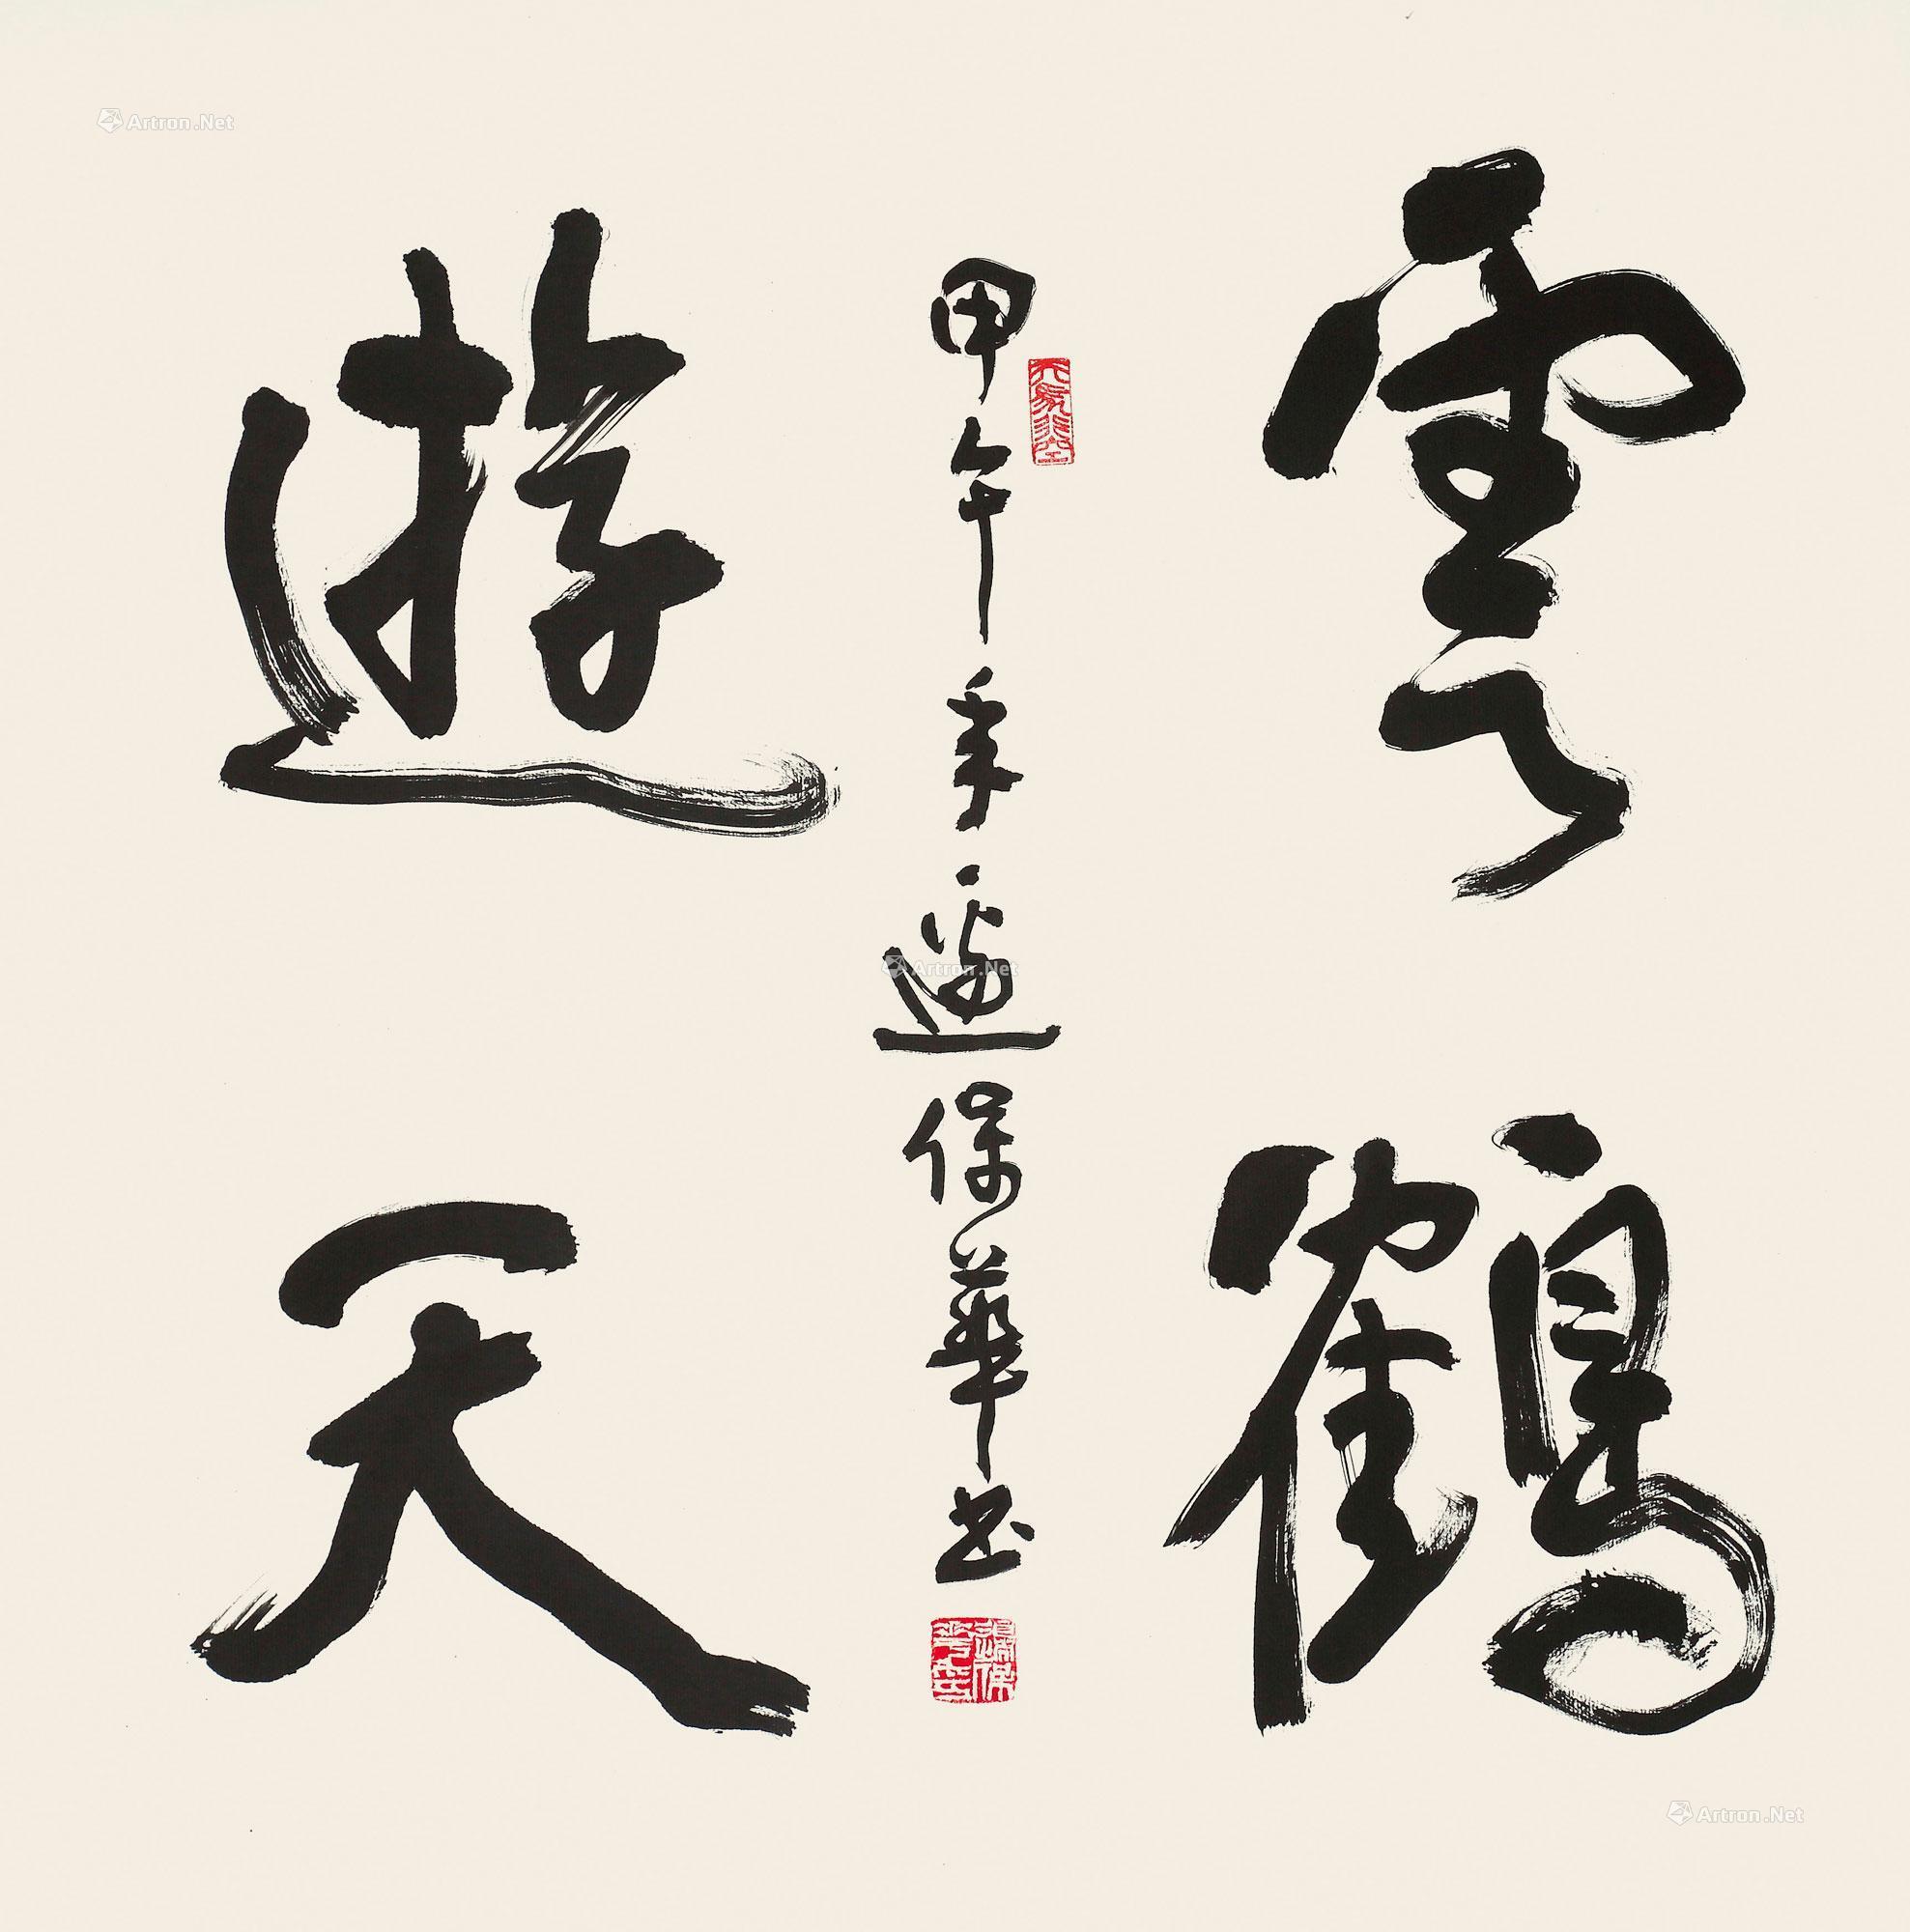 雲鶴
遊天
甲午年遆保華書
天馬行空
Artron.Net
Artron.Net
Artron.Net